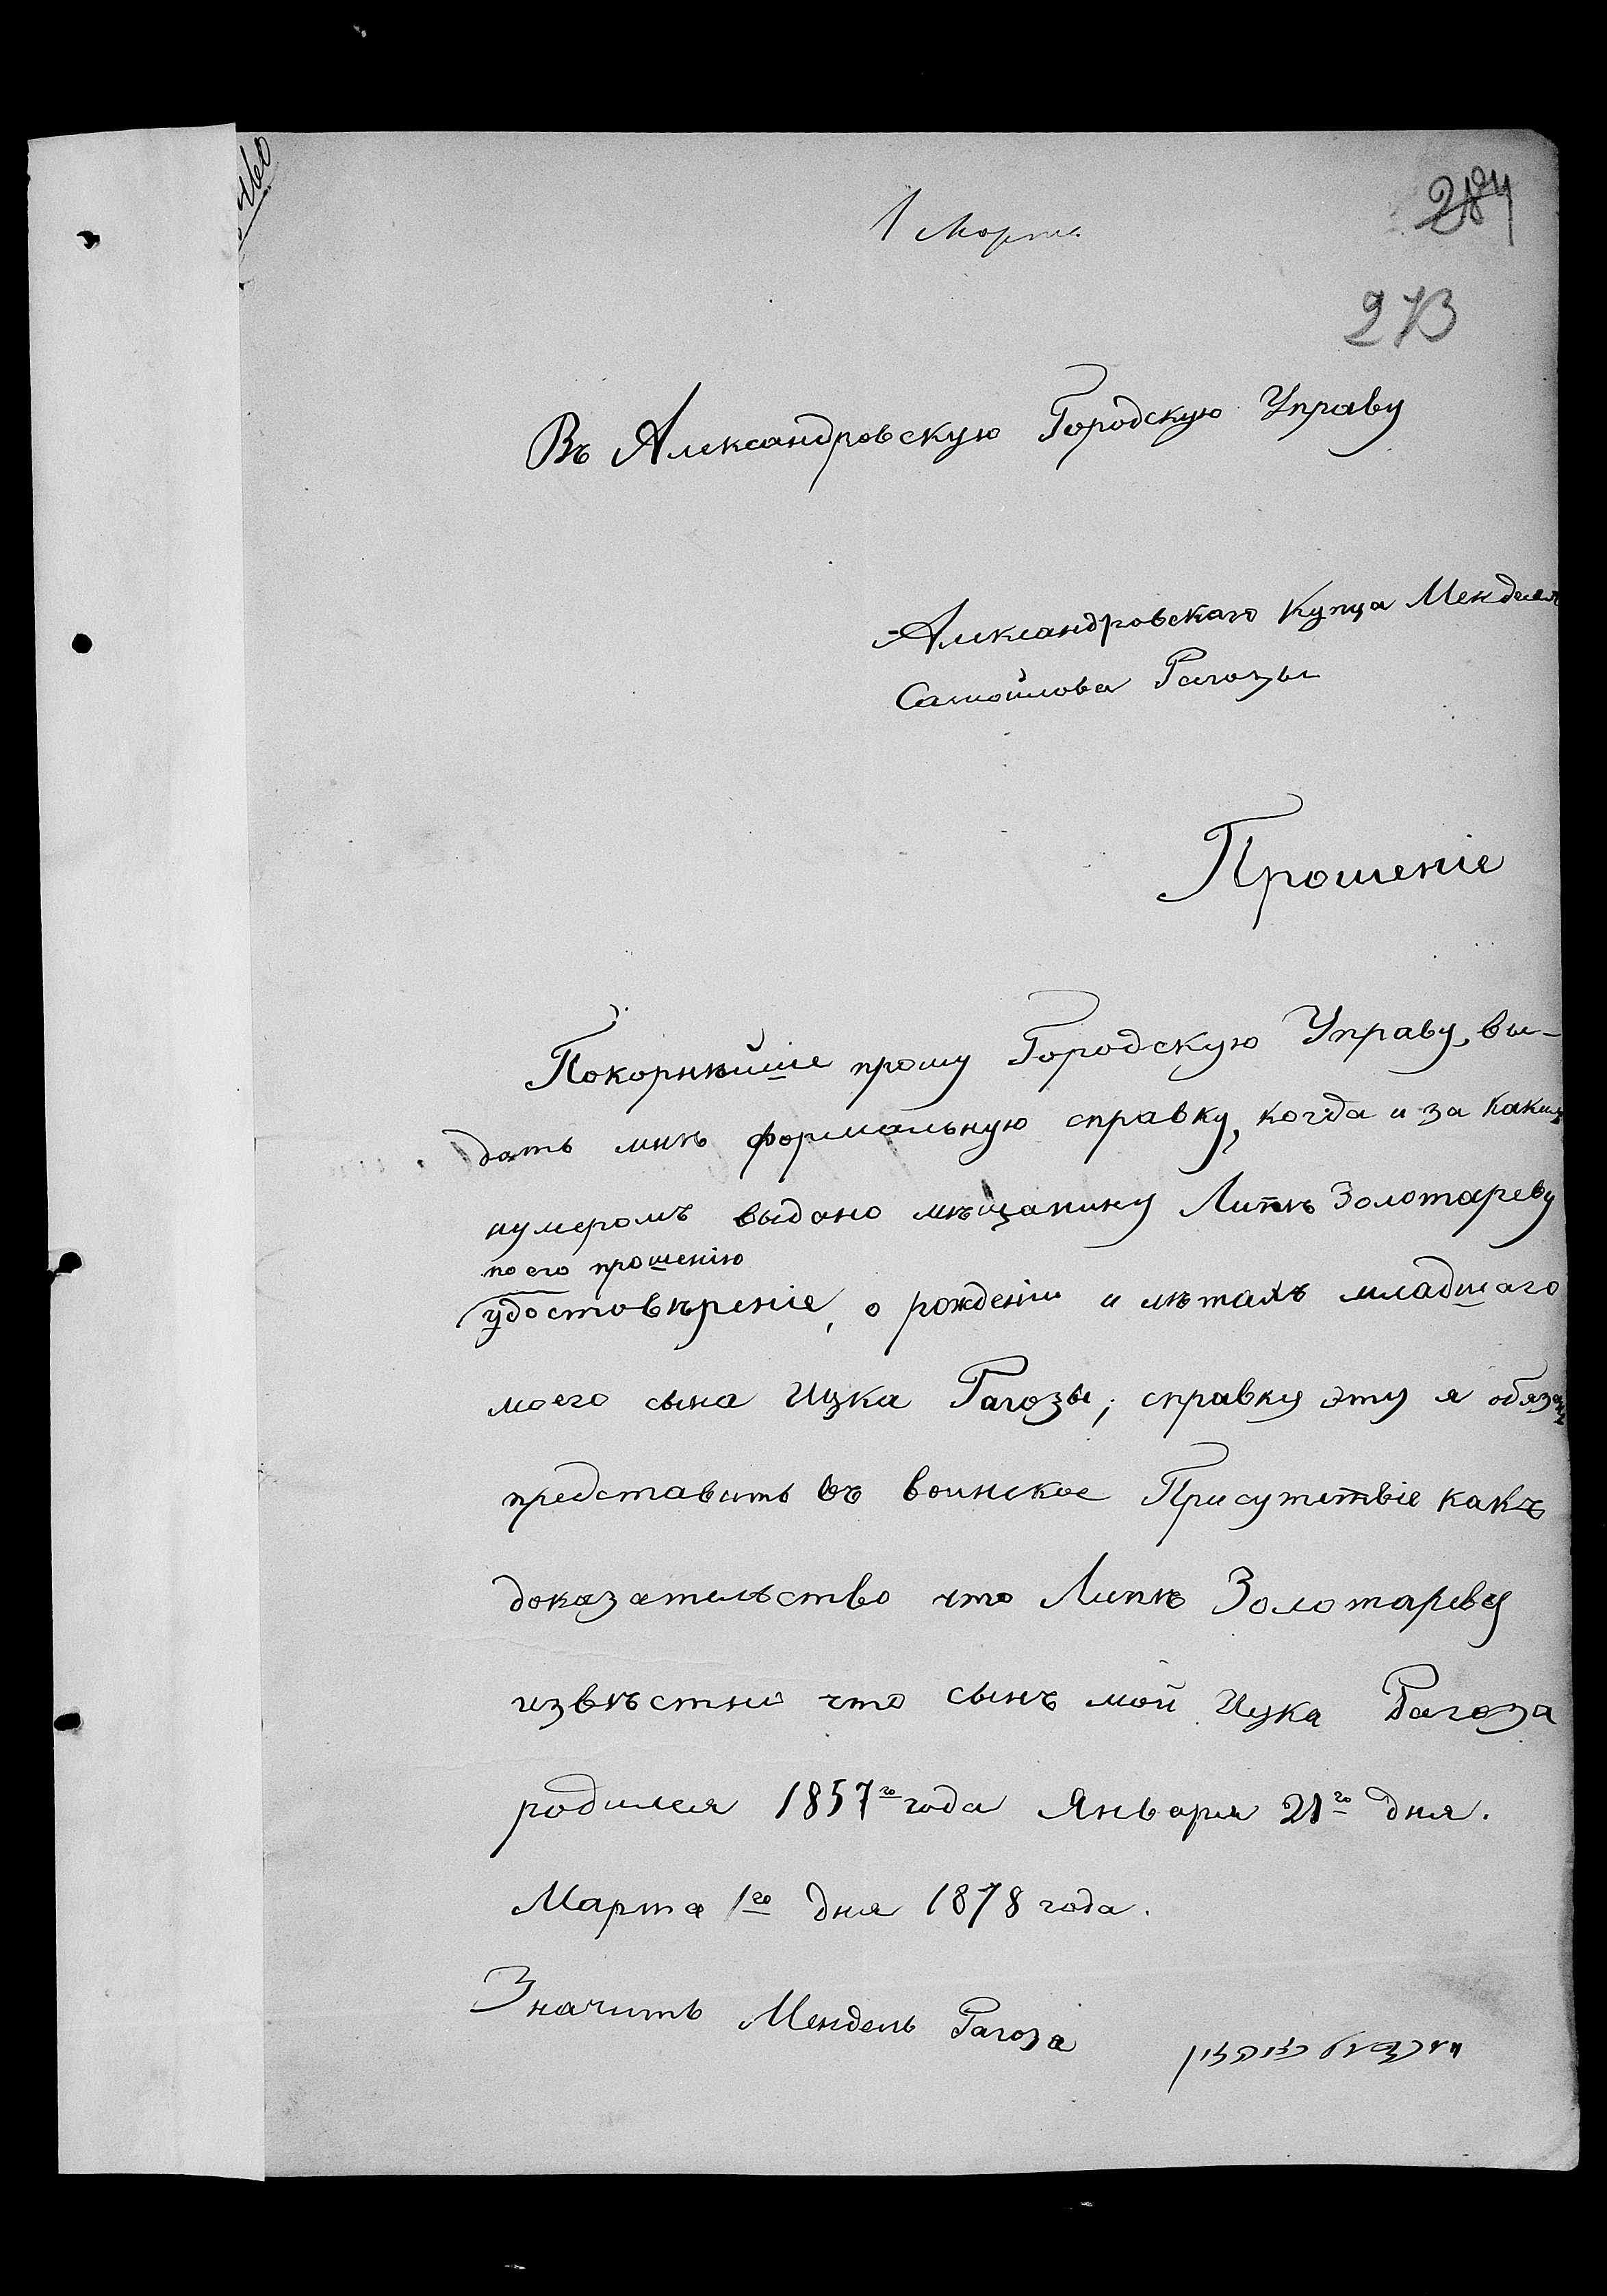 1 Марта
284
273
Въ Александровскую Городскую Управу
Александровскаго Купца Менделя
Самойлова Рагозы
Прошеніе
Покорнѣйше прошу Городскую Управу, вы-
дать мнѣ формальную справку, когда и за какимъ
нумеромъ выдано мѣщанину Липкѣ Золотареву
по его прошенію
удостовѣреніе, о рожденіи и лѣтахъ младшаго
моего сына Ицка Рагозы; справку эту я обязанъ
представить въ воинское Присутствіе какъ
доказательство что Липкѣ Золотареву
извѣстно что сынъ мой Ицка Рагоза
родился 1857го года Января 21го дня.
Марта 1го дня 1878 года.
Значитъ Мендель Рагоза